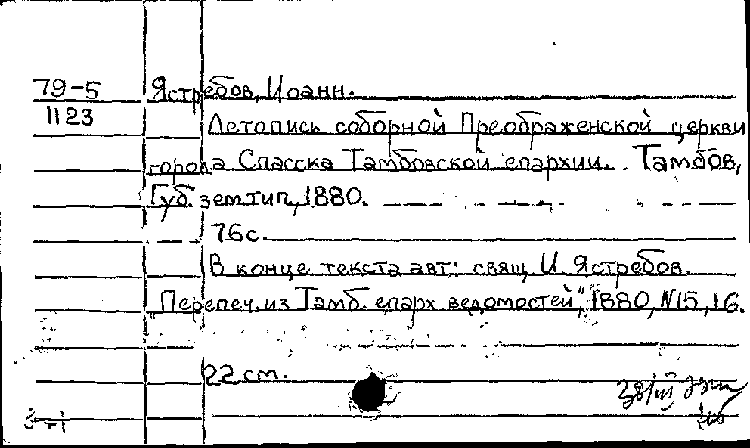 79-5 Ястребов, Иоанн.
1123
Летопись соборной Преображенской церкви
города Спасска Тамбовской епархии. Тамбов,
Губ. зем. тип., 1880.
76 с.
В конце текста авт: свящ. И. Ястребов.
"Перепеч. из Тамб. епарх ведомостей", 1880, N15, 16.
22 см.